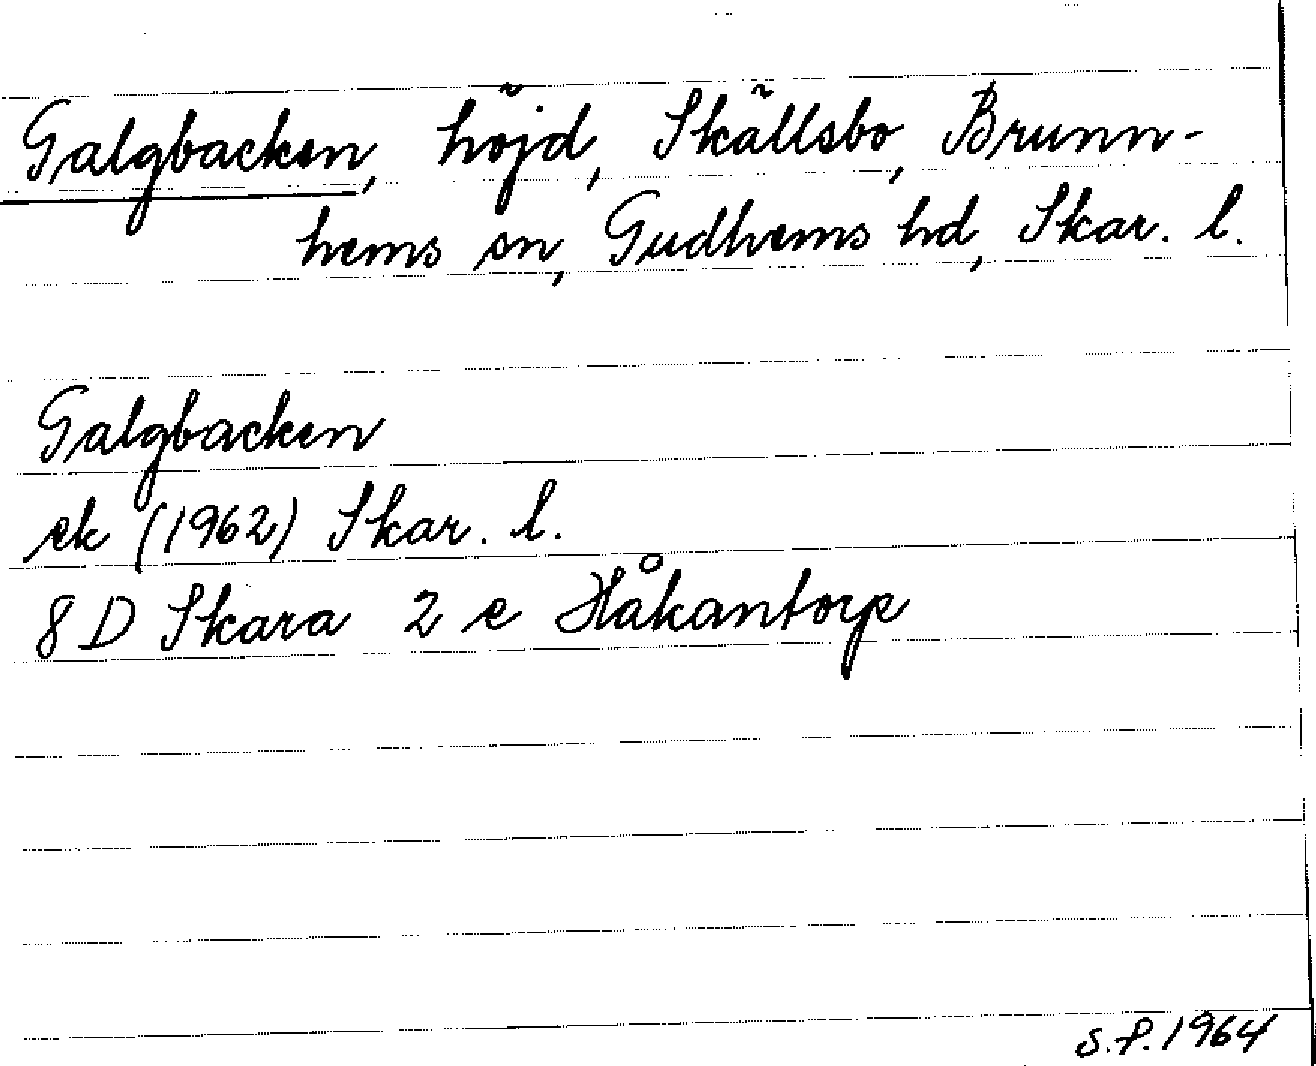 Galgbacken, höjd, Skällsbo, Brunn-
hems sn, Gudhems hd, Skar. l.
Galgbacken
ek (1962) Skar. l.
8 D Skara 2 e Håkantorp
S.P. 1964